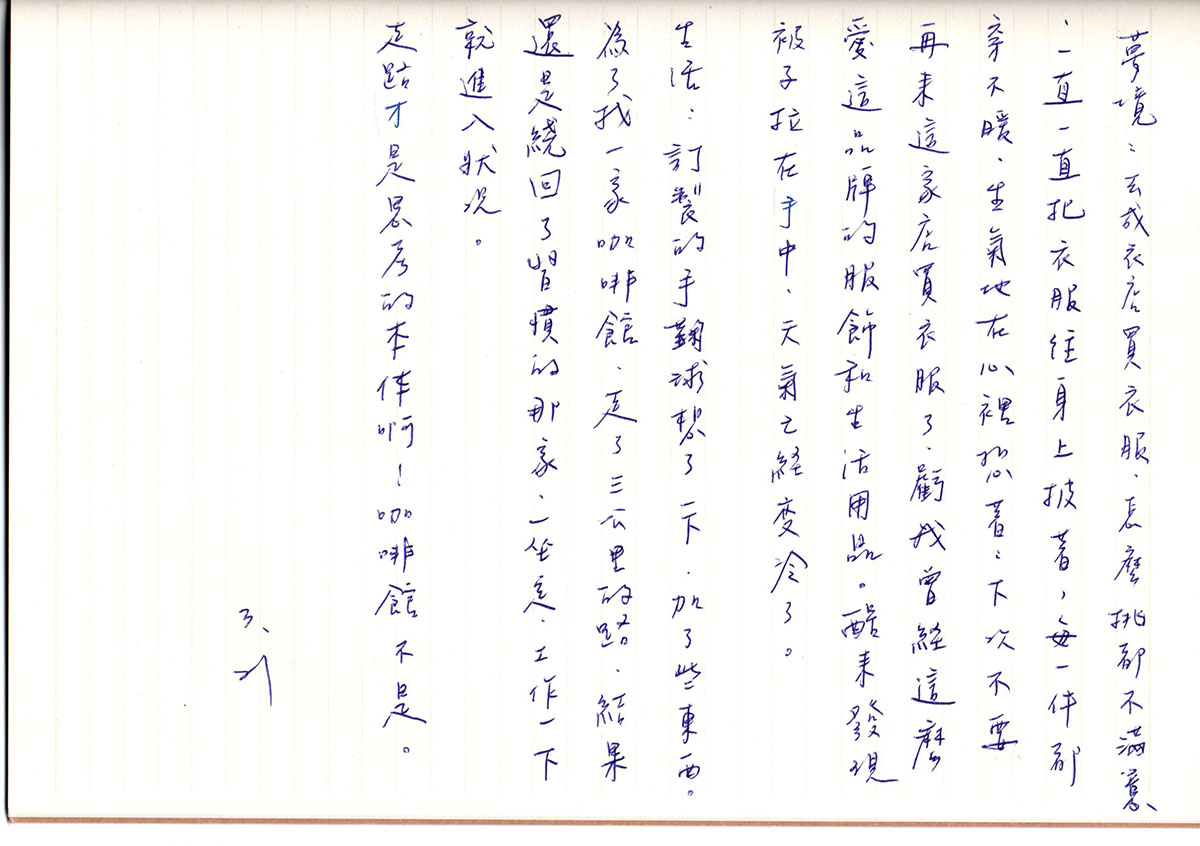 夢境：去成衣店買衣服、怎麼挑都不滿意
、一直一直把衣服往身上披著，每一件都
穿不暖、生氣地在心裡想著：下次不要
再來這家店買衣服了、虧我曾經這麼
愛這品牌的服飾和生活用品。醒來發現
被子拉在手中、天氣已經变冷了。
生活：訂製的手鞠球想了一下、加了些東西。
為了找一家咖啡館、走了三公里的路、結果
還是繞回了習慣的那家、一坐定、工作一下
就進入狀況。
走路才是思考的本体啊！咖啡館不是。